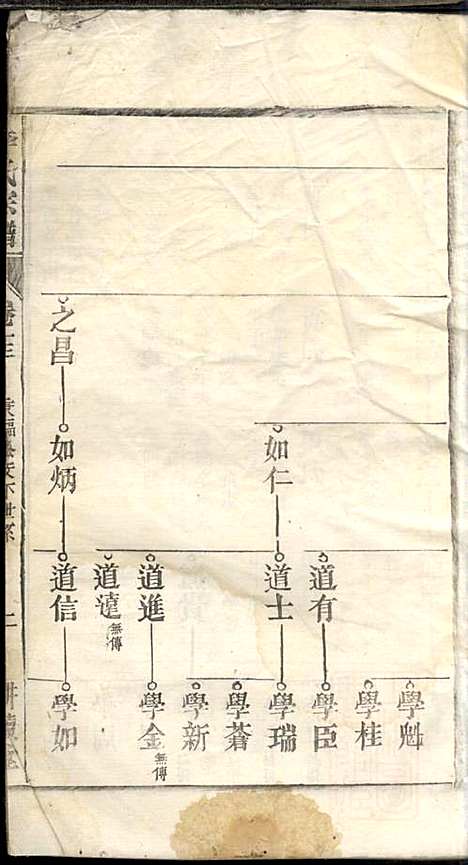 如仁
之昌
如炳
道有
道士
道進
道達 無傳
道信
學魁
學桂
學臣
學瑞
學蒼
學新
學金 無傳
學如
氏宗譜